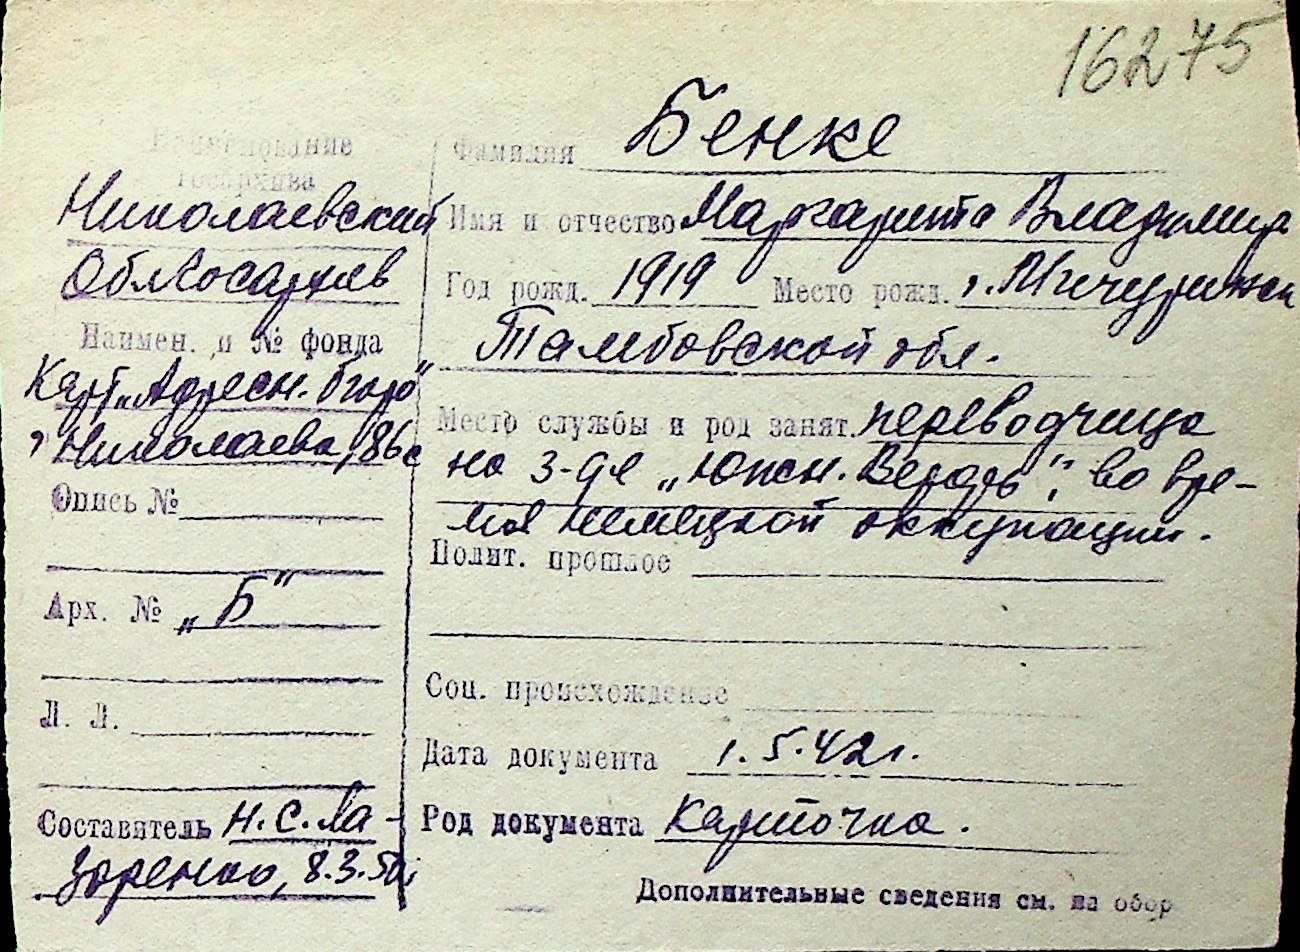 16275
Наименование
Госархива
Николаевский
Облгосархив
Наимен. и № фонда
Карт. „Адресн. бюро"
г. Николаева, 186с
Опись №
Арх. № „Б"
Л. Л.
Составитель Н. С. Ла-
заренко, 8.3.50г.
Фамилия Бенке
Имя и отчество Маргарита Владимир
Год рожд. 1919 Место рожд. г. Мичуринск
Тамбовской обл.
Место службы и род занят. переводчица
на з-де „Южн. Верфь", во вре-
мя немецкой оккупации.
Полит. прошлое
Соц. происхождение
Дата документа 1.5.42г.
Род документа карточка.
Дополнительные сведения см. на обор